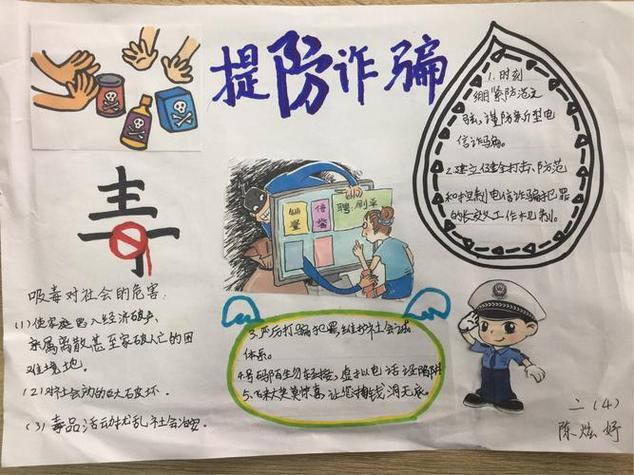 提防诈骗
1.时刻
绷紧防范之
弦,谨防新型电
信诈骗。
2.建立健全打击、防范
和控制电信诈骗犯罪
的长效工作机制。
毒
吸毒对社会的危害:
(1)使家庭陷入经济破产、
亲属离散甚至家破人亡的困
难境地。
(2)对社会
(3)毒品活动扰乱社会治安.
销量
信誉
聘:刷单
3.严厉打骗犯罪,维护社会诚
体系。
4.号码陌生勿轻接,虚拟电话设陷阱
5.飞来大奖莫惊喜,让您掏钱洞无底.
二(4)
陈炫妤